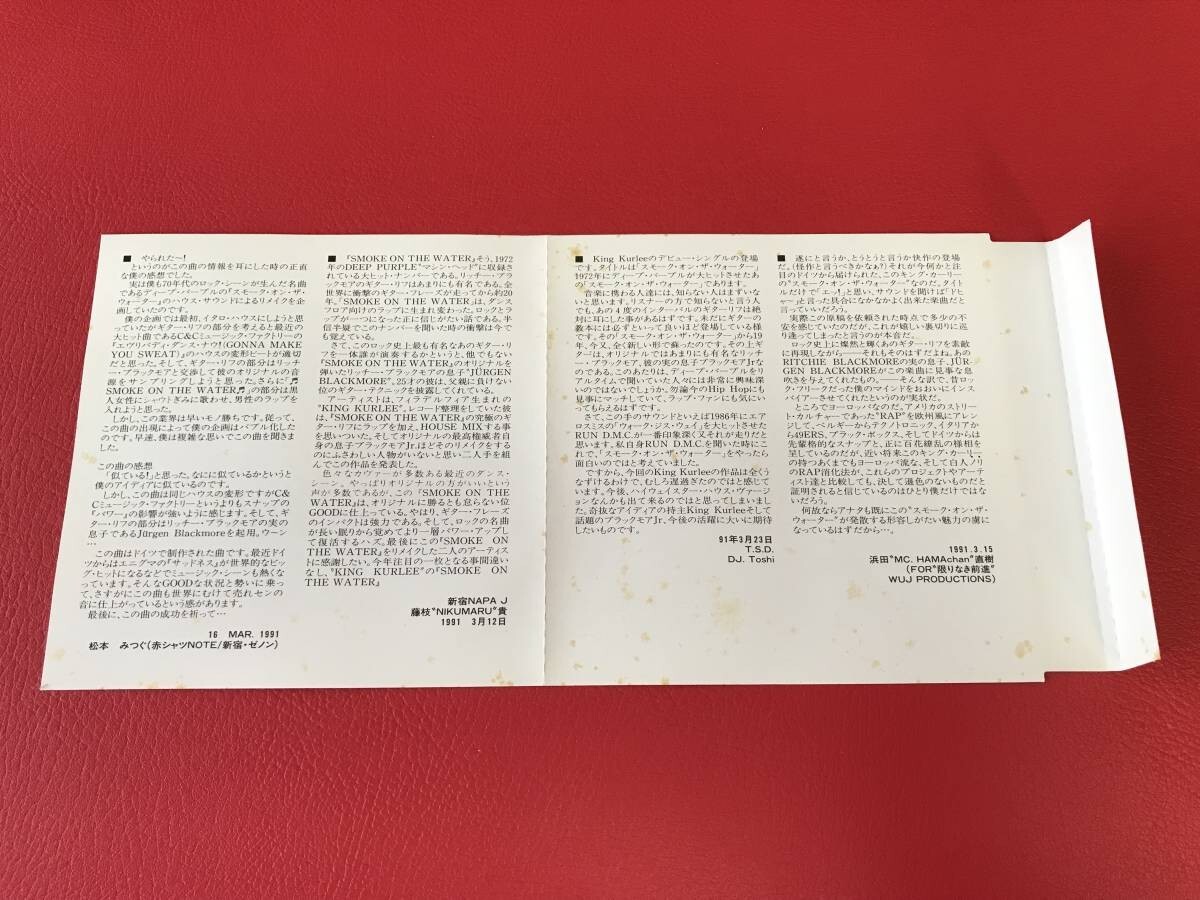 ■ やられた〜!
というのがこの曲の情報を耳にした時の正直
な僕の感想でした。
実は僕も70年代のロック・シーンが生んだ名曲
であるディープ・パープルの『スモーク・オン・ザ・
ウォーター』のハウス・サウンドによるリメイクを企
画していたのです。
僕の企画では最初、イタロ・ハウスにしようと思
っていたがギター・リフの部分を考えると最近の
大ヒット曲であるC&Cミュージック・ファクトリーの
『エヴリバディ・ダンス・ナウ!(GONNA MAKE
YOU SWEAT)』のハウスの変形ビートが適切
だと思った。そして、ギター・リフの部分はリッチ
ー・ブラックモアと交渉して彼のオリジナルの音
源をサンプリングしようと思った。さらに「♬
SMOKE ON THE WATER♬」の部分は黒
人女性にシャウトぎみに歌わせ、男性のラップを
入れようと思った。
しかし、この業界は早いモノ勝ちです。従って、
この曲の出現によって僕の企画はバブル化した
のです。早速、僕は複雑な思いでこの曲を聞きま
した。
この曲の感想
「似ている!」と思った。なにに似ているかというと
僕のアイディアに似ているのです。
しかし、この曲は同じハウスの変形ですがC&
Cミュージック・ファクトリーというよりもスナップの
『パワー』の影響が強いように感じます。そして、ギ
ター・リフの部分はリッチー・ブラックモアの実の
息子であるJürgen Blackmoreを起用。ウーン
…
この曲はドイツで制作された曲です。最近ドイ
ツからはエニグマの『サッドネス』が世界的なビッ
グ・ヒットになるなどでミュージック・シーンも熱くな
っています。そんなGOODな状況と勢いに乗っ
て、さすがにこの曲も世界にむけて売れセンの
音に仕上がっているという感があります。
最後に、この曲の成功を祈って…
16 MAR. 1991
松本 みつぐ(赤シャツNOTE/新宿・ゼノン)
■ 『SMOKE ON THE WATER』そう、1972
年のDEEP PURPLE"マシン・ヘッド"に収録さ
れている大ヒット・ナンバーである。リッチー・ブラ
ックモアのギター・リフはあまりにも有名である。全
世界に衝撃のギター・フレーズが走ってから約20
年。『SMOKE ON THE WATER』は、ダンス
フロア向けのラップに生まれ変わった。ロックとラ
ップが一つになった正に信じがたい話である。半
信半疑でこのナンバーを聞いた時の衝撃は今で
も覚えている。
さて、このロック史上最も有名なあのギター・リ
フを一体誰が演奏するかというと、他でもない
『SMOKE ON THE WATER』のオリジナルを
弾いたリッチー・ブラックモアの息子"JÜRGEN
BLACKMORE"。25才の彼は、父親に負けない
位のギター・テクニックを披露してくれている。
アーティストは、フィラデルフィア生まれの
"KING KURLEE"。レコード整理をしていた彼
は、『SMOKE ON THE WATER』の究極のギ
ター・リフにラップを加え、HOUSE MIXする事
を思いついた。そしてオリジナルの最高権威者自
身の息子ブラックモアJr.ほどそのリメイクをする
のにふさわしい人物がいないと思い二人手を組
んでこの作品を発表した。
色々なカヴァーが多数ある最近のダンス・
シーン。やっぱりオリジナルの方がいいという
声が多数であるが、この『SMOKE ON THE
WATER』は、オリジナルに勝るとも怠らない位
GOODに仕上っている。やはり、ギター・フレーズ
のインパクトは強力である。そして、ロックの名曲
が長い眠りから覚めてより一層パワー・アップし
て復活するハズ。最後にこの『SMOKE ON
THE WATER』をリメイクした二人のアーティス
トに感謝したい。今年注目の一枚となる事間違い
なし、"KING KURLEE"の『SMOKE ON
THE WATER』
新宿NAPA J
藤枝"NIKUMARU"貴
1991 3月12日
■ King Kurleeのデビュー・シングルの登場
です。タイトルは「スモーク・オン・ザ・ウォーター」
1972年にディープ・パープルが大ヒットさせたあ
の「スモーク・オン・ザ・ウォーター」であります。
音楽に携わる人達には、知らない人はまずいな
いと思います。リスナーの方で知らないと言う人
でも、あの4度のインターバルのギターリフは絶
対に耳にした事があるはずです。未だにギターの
教本には必ずといって良いほど登場している様
です。その「スモーク・オン・ザ・ウォーター」から19
年、今又、全く新しい形で蘇ったのです。その上ギ
ターは、オリジナルではあまりにも有名なリッチ
ー・ブラックモア、彼の実の息子ブラックモアJrな
のである。このあたりは、ディープ・パープルをリ
アルタイムで聞いていた人々には非常に興味深
いのではないでしょうか。勿論今のHip Hopにも
見事にマッチしていて、ラップ・ファンにも気にい
ってもらえるはずです。
さて、この手のサウンドといえば1986年にエア
ロスミスの「ウォーク・ジス・ウェイ」を大ヒットさせた
RUN D.M.C.が一番印象深く又それが走りだと
思います。私自身RUN D.M.C.を聞いた時にこ
れで、「スモーク・オン・ザ・ウォーター」をやったら
面白いのではと考えていました。
ですから、今回のKing Kurleeの作品は全くう
なずけるわけで、むしろ遅過ぎたのではと感じて
います。今後、ハイウェイスター・ハウス・ヴァージ
ョンなんかも出て来るのではと思ってしまいまし
た。奇抜なアイディアの持主King Kurleeそして
話題のブラックモアJr、今後の活躍に大いに期待
したいものです。
91年3月23日
T.S.D.
DJ. Toshi
■ 遂にと言うか、とうとうと言うか快作の登場
だ。(怪作と言うべきかなぁ?)それが今何かと注
目のドイツから届けられた、このキング・カーリー
の"スモーク・オン・ザ・ウォーター"なのだ。タイト
ルだけで「エッ!」と思い、サウンドを聞けば「ドヒ
ャ〜」と言った具合になかなかよく出来た楽曲だと
言っていいだろう。
実際この原稿を依頼された時点で多少の不
安を感じていたのだが、これが嬉しい裏切りに巡
り逢ってしまったと言うのが本音だ。
ロック史上に燦然と輝くあのギター・リフを素敵
に再現しながら——それもそのはずだよね。あの
RITCHIE BLACKMOREの実の息子、JÜR-
GEN BLACKMOREがこの楽曲に見事な息
吹きを与えてくれたもの。——そんな訳で、昔ロッ
ク・フリークだった僕のマインドをおおいにインス
パイアーさせてくれたというのが実状だ。
ところでヨーロッパなのだ。アメリカのストリー
ト・カルチャーであった"RAP"を欧州風にアレン
ジして、ベルギーからテクノトロニック、イタリアか
ら49ERS、ブラック・ボックス、そしてドイツからは
先輩格的なスナップと、正に百花繚乱の様相を
呈しているのだが、近い将来このキング・カーリー
の持つあくまでもヨーロッパ流な、そして白人ノリ
のRAP消化法が、これらのプロジェクトやアーテ
ィスト達と比較しても、決して遜色のないものだと
証明されると信じているのはひとり僕だけではな
いだろう。
何故ならアナタも既にこの"スモーク・オン・ザ・
ウォーター"が発散する形容しがたい魅力の虜に
なっているはずだから…。
1991.3.15
浜田"MC. HAMAchan"直樹
(FOR"限りなき前進"
WUJ PRODUCTIONS)